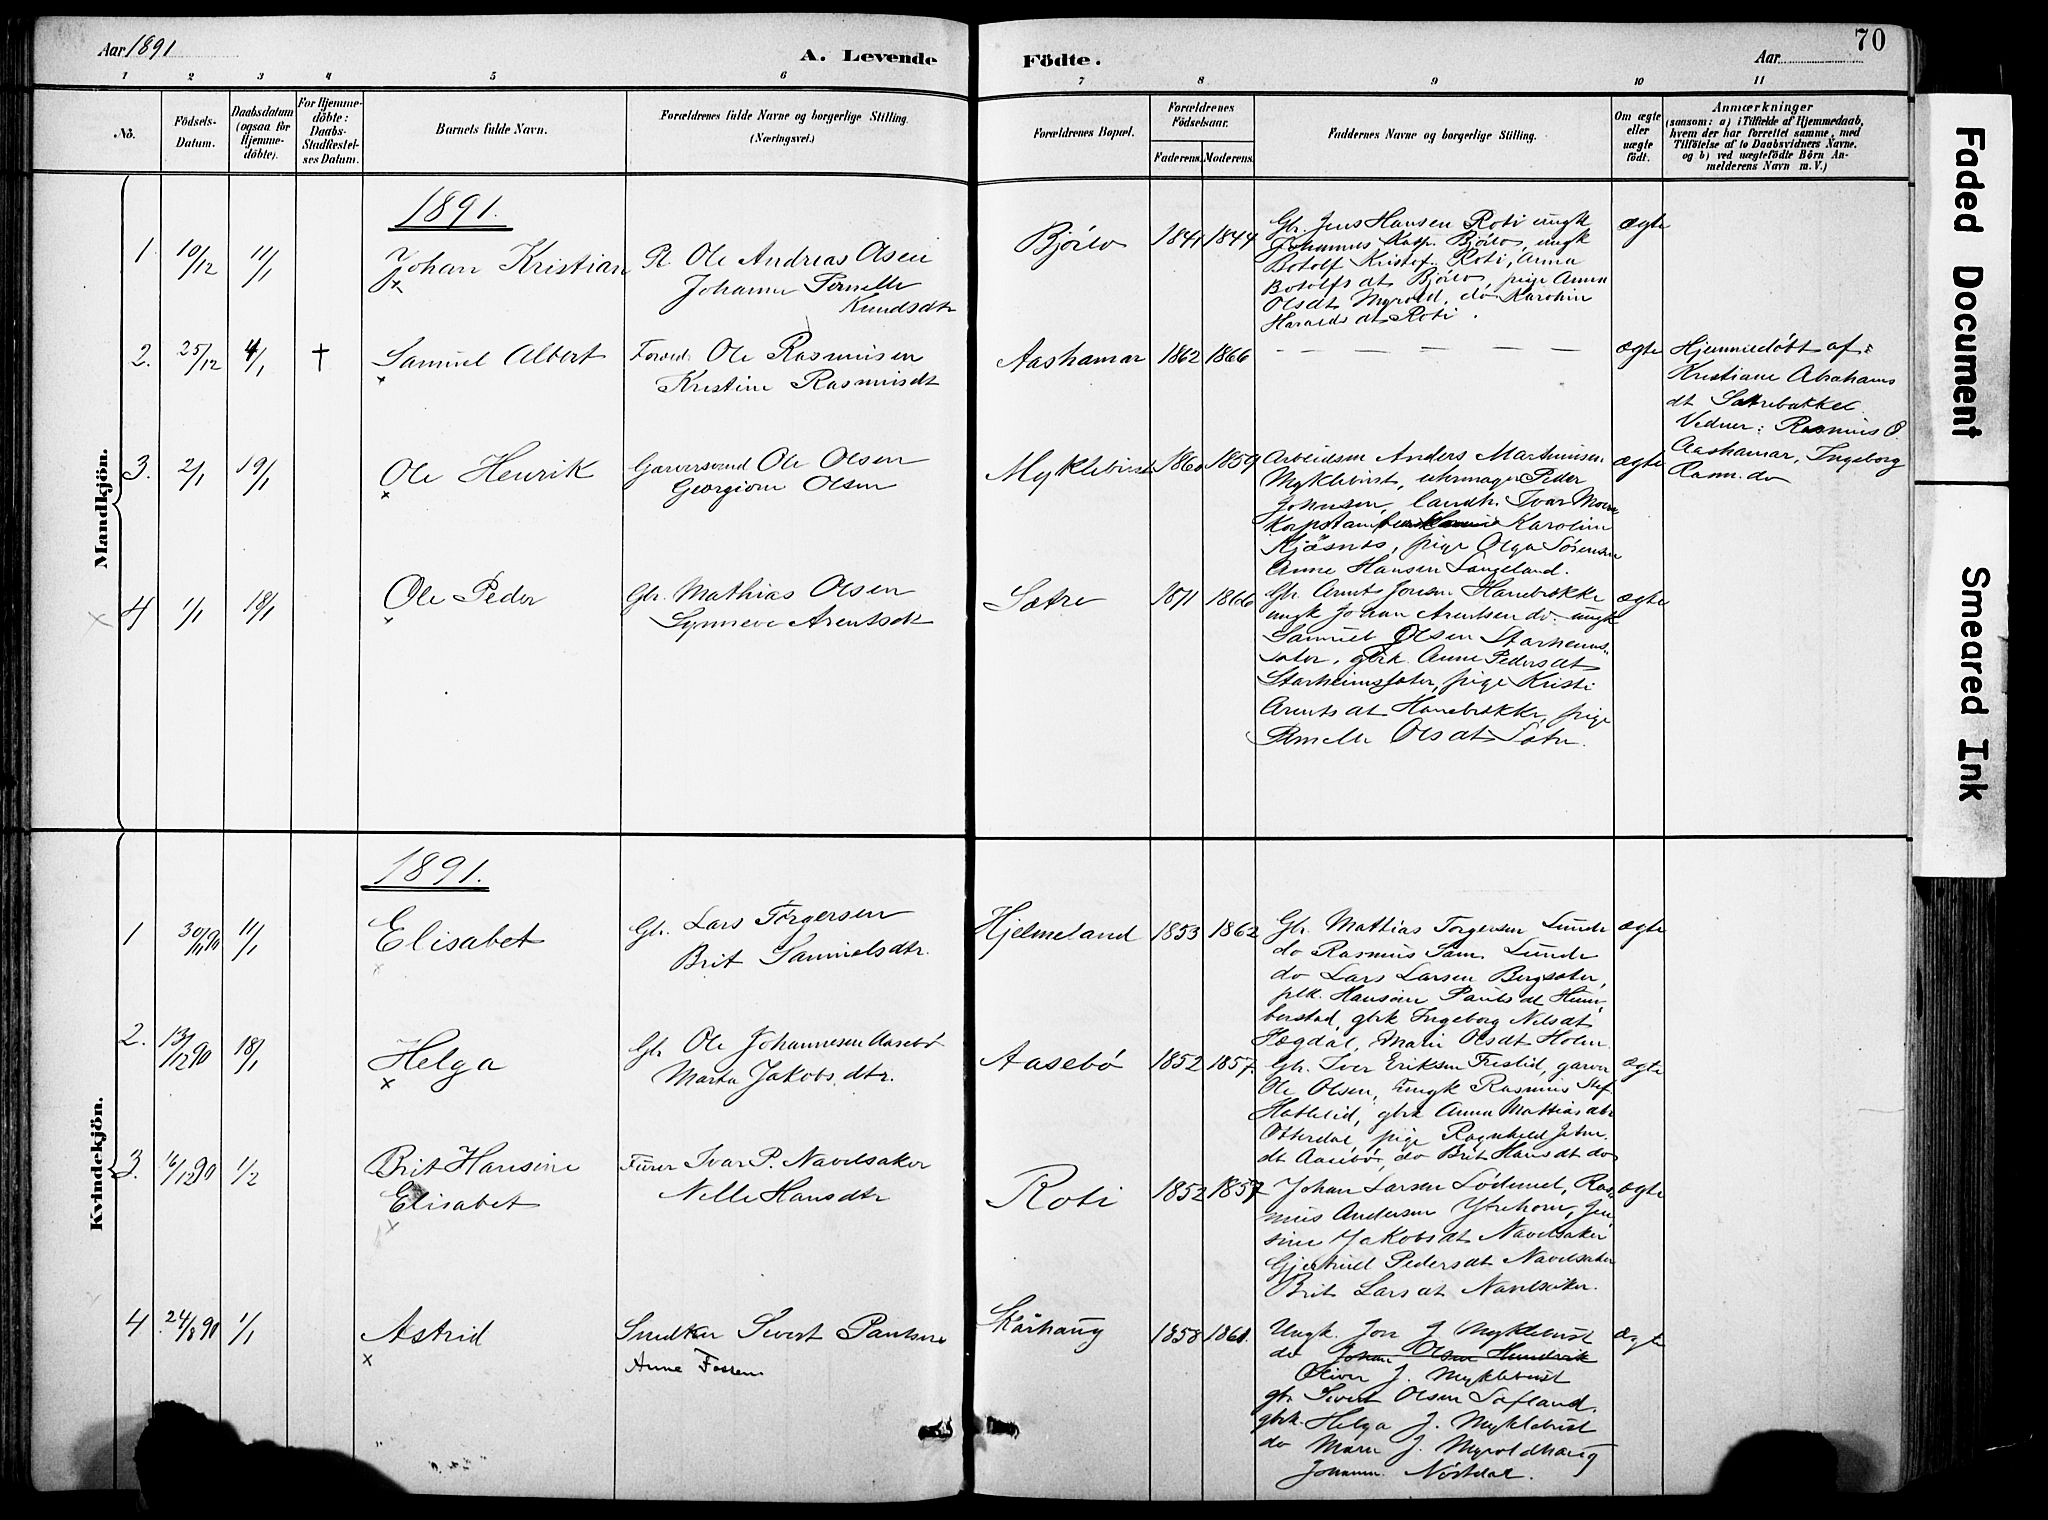 Aar 1891
A. Levende
Födte.
Aar
70
1 2 3 4 5 6 7 8 9 10 11
No.
Födsels-
Datum.
Daabsdatum
(ogsaa for
Hjemme-
döbte).
For Hjemme-
döbte:
Daabs-
Stadfæstel-
ses Datum.
Barnets fulde Navn.
Forældrenes fulde Navne og borgerlige Stilling.
(Næringsvei.)
Forældrenes Bopæl.
Forældrenes
Födselsaar.
Faderens. Moderens.
Faddernes Navne og borgerlige Stilling.
Om ægte
eller
uægte
födt.
Anmærkninger
(saasom: a) i Tilfælde af Hjemmedaab,
hvem der har forrettet samme, med
Tilföielse af to Daabsvidners Navne.
og b) ved uægtefödte Börn An-
melderens Navn m. V.)
Mandkjön.
1891.
1. 10/12 11/1
Johan Kristian
Ole Andreas Asen
Johanne Pernelle
Knudsdtr
Bjørlo 1841 1844
Gbr. Jens Hansen Roti ungk
Johannes Kasp. Bjørlo, ungk
Botolf Kristof. Roti, Anna
Botolfsdt Bjørlo, pige Anna
Olsdt Myrold, do Karolin
Haraldsdt Roti.
ægte
2. 25/12 4/1 †
Samuel Albert
Forvd. Ole Rasmusen
Kristine Rasmusdt
Aashamar 1862 1866
— — — — — —
ægte
Hjemmedøbt af:
Kristiane Abrahams
dt Sætrebakket.
Vidner: Rasmus O.
Aashamar, Ingeborg
Rasm. do
3. 2/1 19/1
Ole Henrik
Garversvend Ole Olsen
Georgine Olsen
Myklebust 1860 1859
Arbeidsm Anders Martinusen
Myklebust, uhrmager Peder
Johnsen, landh. Ivar
Karoline
Kjøsnes, pige Olga Sørensen
Anne Hansen Langeland.
ægte
4 1/1 18/1
Ole Peder
Gbr. Mathias Olsen
Synneve Arentsdt
Sætre 1871 1866
Gbr. Arnts Jonsen Hanebrække
ungk Johan Arentsen do. ungk
Samuel Olsen Starheims-
sæter, gbrk. Anne Pedersdt
Starheimssæter, pige Kristi
Arentsdt Hanebrække, pige
Pernelle Olsdt Sætre.
ægte
Kvindekjön.
1891.
1 30/11 90 11/1
Elisabet
Gbr. Lars Torgersen
Brit Samuelsdtr.
Hjelmeland 1853 1862
Gbr. Mathias Torgersen Lunde
do Rasmus Sam. Lunde
do Lars Larsen Bergsæter,
Hansine Paulsdt Hum-
berstad, gbrk Ingeborg Nilsdt
Fægdal, Marie Olsdt Holm.
ægte
2. 13/12 90 18/1
Helga
Gbr Ole Johannesen Aasebø
Marta Jakobsdtr.
Aasebø 1852 1857.
Gbr. Iver Eriksen Frislid, garver
Ole Olsen, ungk Rasmus Stef.
Hatlelid, gbrk Anna Mattiasdtr
Otterdal, pige Ragnhild
dt Aasebø, do Brit Hansdt do
ægte
3. 16/12 90 1/2
Brit Hansine
Elisabet
Furer Ivar P. Navelsaker
Nille Hansdtr
Roti 1852 1857
Johan Larsen Lødemel, Ras-
mus Andersen Ytrehorn, Jen-
sine Jakobsdt Navelsaker
Gjertrud Pedersdt Navelsaker
Brit Larsdt Navelsaker.
ægte
4 24/8 90 1/1
Astrid
Snedker Sivert Paulsen
Anne Fossen
Skårhaug 1858 1861.
Ungk. Jon J Myklebust
do Johan Olsen Hundvik
Oliver J. Myklebust
gbr Sivert Olsen Sæfland,
gbrk. Helga J. Myklebust
do Marie J. Myroldhaug
Johanne Nøstdal.
ægte
Faded Document
Smeared Ink